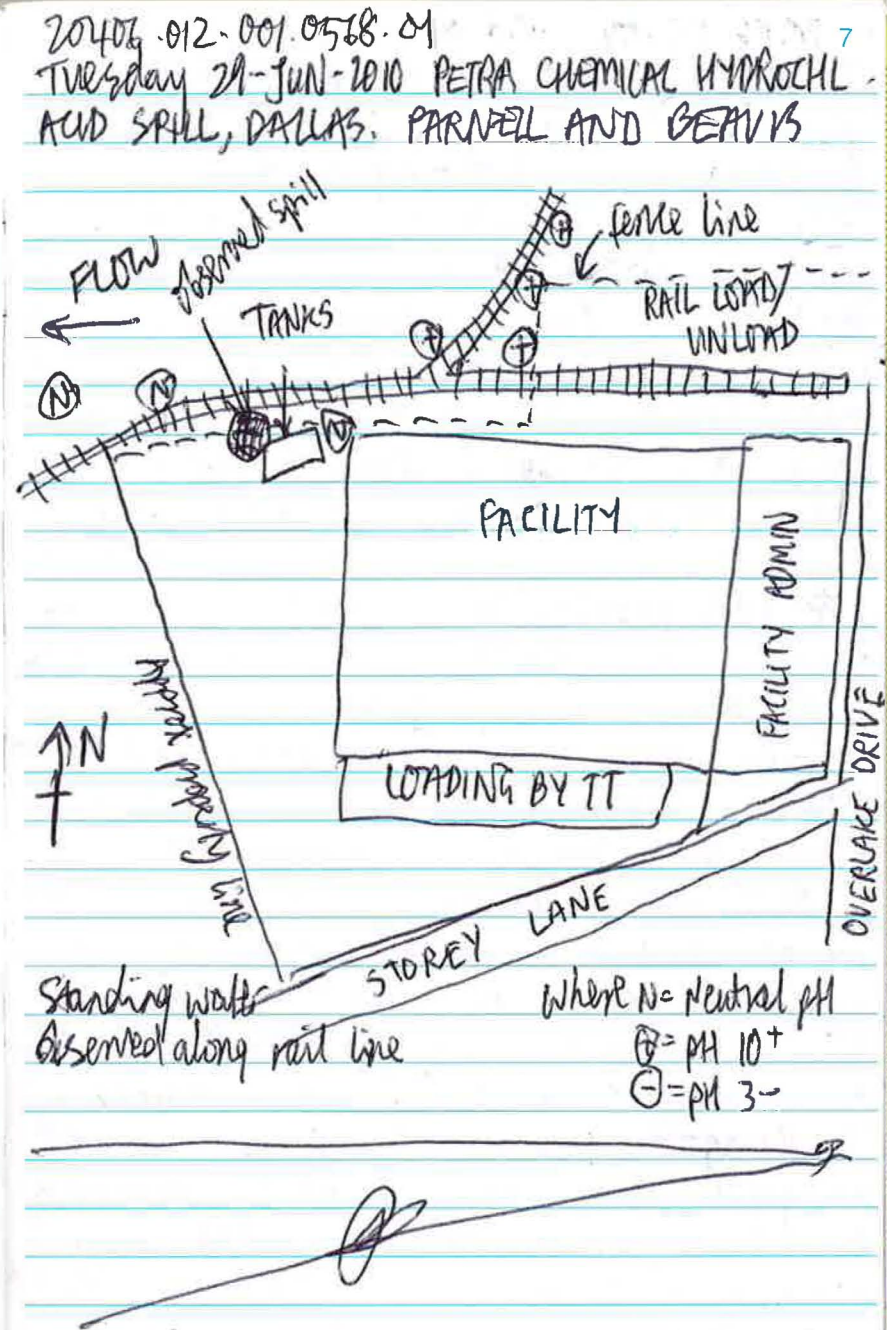 7
20406.012.001.0568.01
Tuesday 29-JUN-2010 PETRA CHEMICAL HYDROCHL.
ACID SPILL, DALLAS. PARNELL AND BEAVIS
FLOW
observed spill
TANKS
fence line
RAIL LOAD/
UNLOAD
N
N
N
+
+
+
+
FACILITY
FACILITY ADMIN
LOADING BY TT
N
line
STOREY LANE
OVERLAKE DRIVE
Standing water
observed along rail line
Where N = Neutral pH
⊕ = pH 10+
⊖ = pH 3-